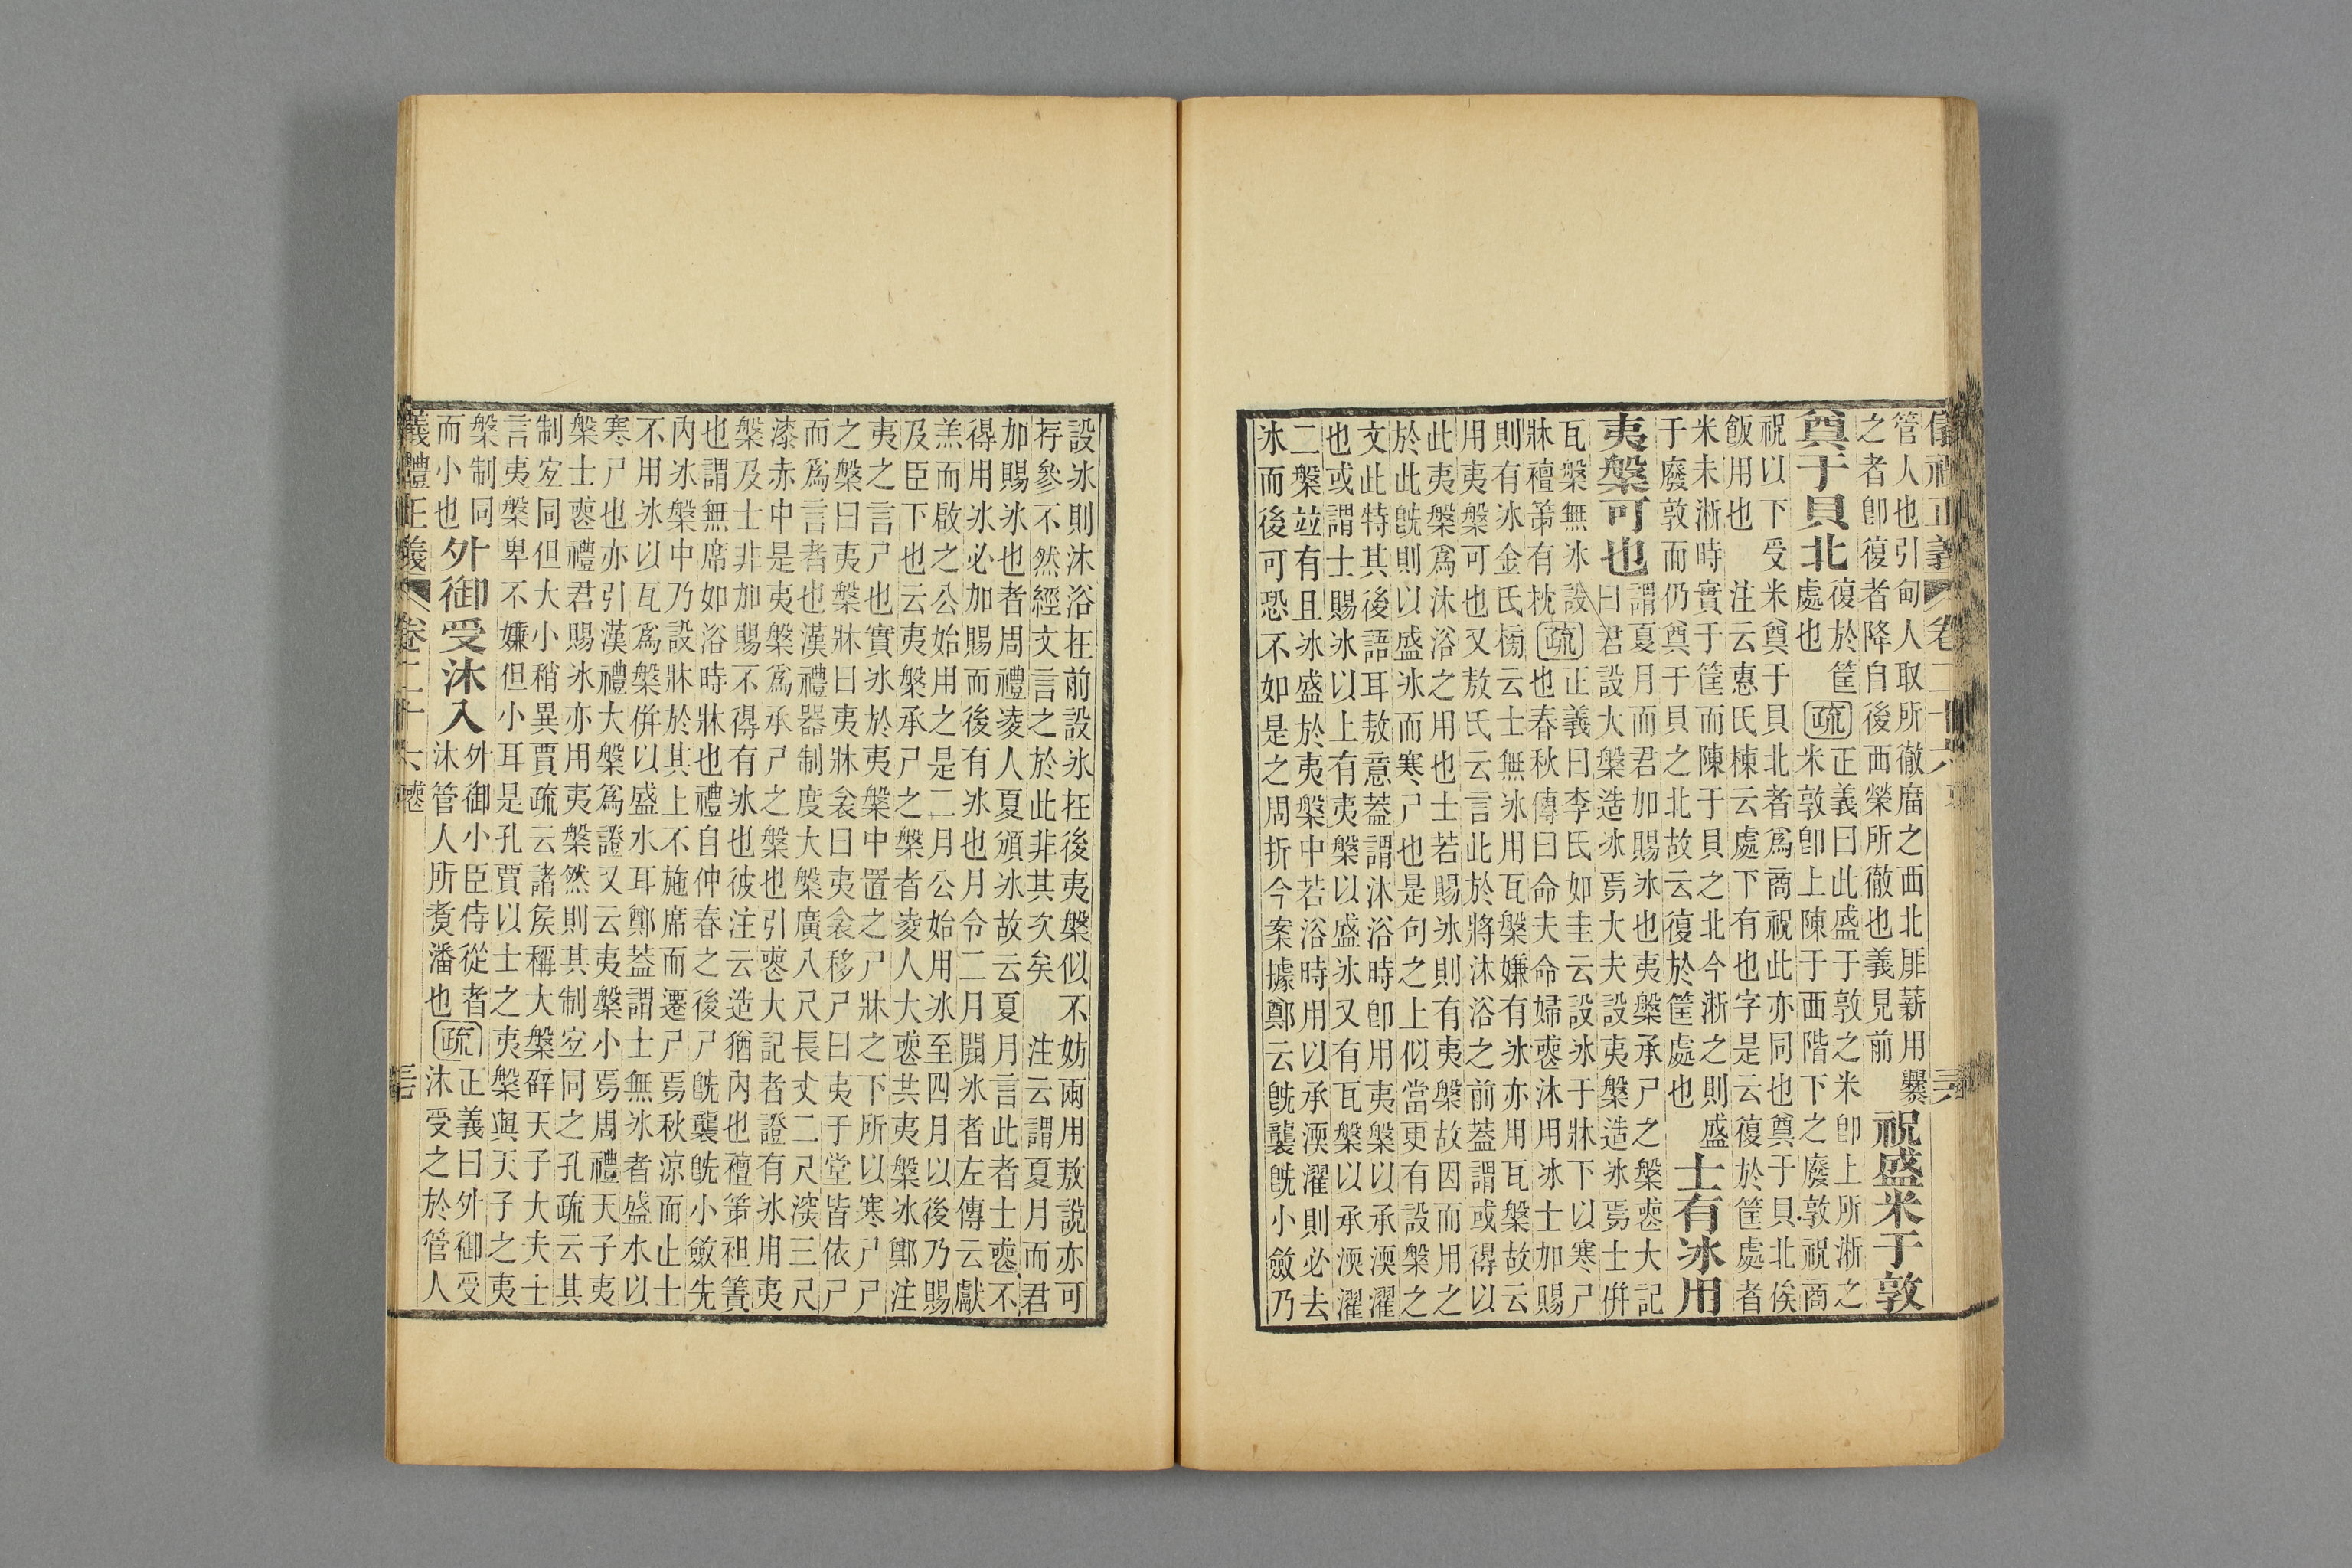 儀禮正義 卷二十六 三六
管人也引甸人取所徹廇之西北厞薪用爨
之者卽復者降自後西榮所徹也義見前
祝盛米于敦
奠于貝北
復於筐
處也
疏
正義曰此盛于敦之米卽上所淅之
米敦卽上陳于西階下之廢敦祝商
祝以下受米奠于貝北者爲商祝此亦同也奠于貝北俟
飯用也 注云惠氏棟云處下有也字是云復於筐處者
米未淅時實于筐而陳于貝之北今淅之則盛
于廢敦而仍奠于貝之北故云復於筐處也
士有冰用
夷槃可也
謂夏月而君加賜冰也夷槃承尸之槃喪大記
曰君設大槃造冰焉大夫設夷槃造冰焉士倂
瓦槃無冰設
牀襢笫有枕
疏
正義曰李氏如圭云設冰于牀下以寒尸
也春秋傳曰命夫命婦喪沐用冰士加賜
則有冰金氏榜云士無冰用瓦槃嫌有冰亦用瓦槃故云
用夷槃可也又敖氏云言此於將沐浴之前蓋謂或得以
此夷槃爲沐浴之用也士若賜冰則有夷槃故因而用之
於此旣則以盛冰而寒尸也是句之上似當更有設槃之
文此特其後語耳敖意蓋謂沐浴時卽用夷槃以承渜濯
也或謂士賜冰以上有夷槃以盛冰又有瓦槃以承渜濯
二槃竝有且冰盛於夷槃中若浴時用以承渜濯則必去
冰而後可恐不如是之周折今案據鄭云旣襲旣小斂乃
設冰則沐浴在前設冰在後夷槃似不妨兩用敖說亦可
存參不然經文言之於此非其次矣 注云謂夏月而君
加賜冰也者周禮凌人夏頒冰故云夏月言此者士喪不
得用冰必加賜而後有冰也月令二月開冰者左傳云獻
羔而啟之公始用之是二月公始用冰至四月以後乃賜
及臣下也云夷槃承尸之槃者凌人大喪共夷槃冰鄭注
夷之言尸也實冰於夷槃中置之尸牀之下所以寒尸尸
之槃曰夷槃牀曰夷牀衾曰夷衾移尸曰夷于堂皆依尸
而爲言者也漢禮器制度大槃廣八尺長丈二尺深三尺
漆赤中是夷槃爲承尸之槃也引喪大記者證有冰用夷
槃及士非加賜不得有冰也彼注云造猶內也襢笫袒簀
也謂無席如浴時牀也禮自仲春之後尸旣襲旣小斂先
內冰槃中乃設牀於其上不施席而遷尸焉秋涼而止士
不用冰以瓦爲槃倂以盛水耳鄭蓋謂士無冰者盛水以
寒尸也亦引漢禮大槃爲證又云夷槃小焉周禮天子夷
槃士喪禮君賜冰亦用夷槃然則其制宐同之孔疏云其
制宐同但大小稍異賈疏云諸矦稱大槃辟天子大夫士
言夷槃卑不嫌但小耳是孔賈以士之夷槃與天子之夷
槃制同
而小也
外御受沐入
外御小臣侍從者
沐管人所煑潘也
疏
正義曰外御受
沐受之於管人
儀禮正義 卷二十六 喪